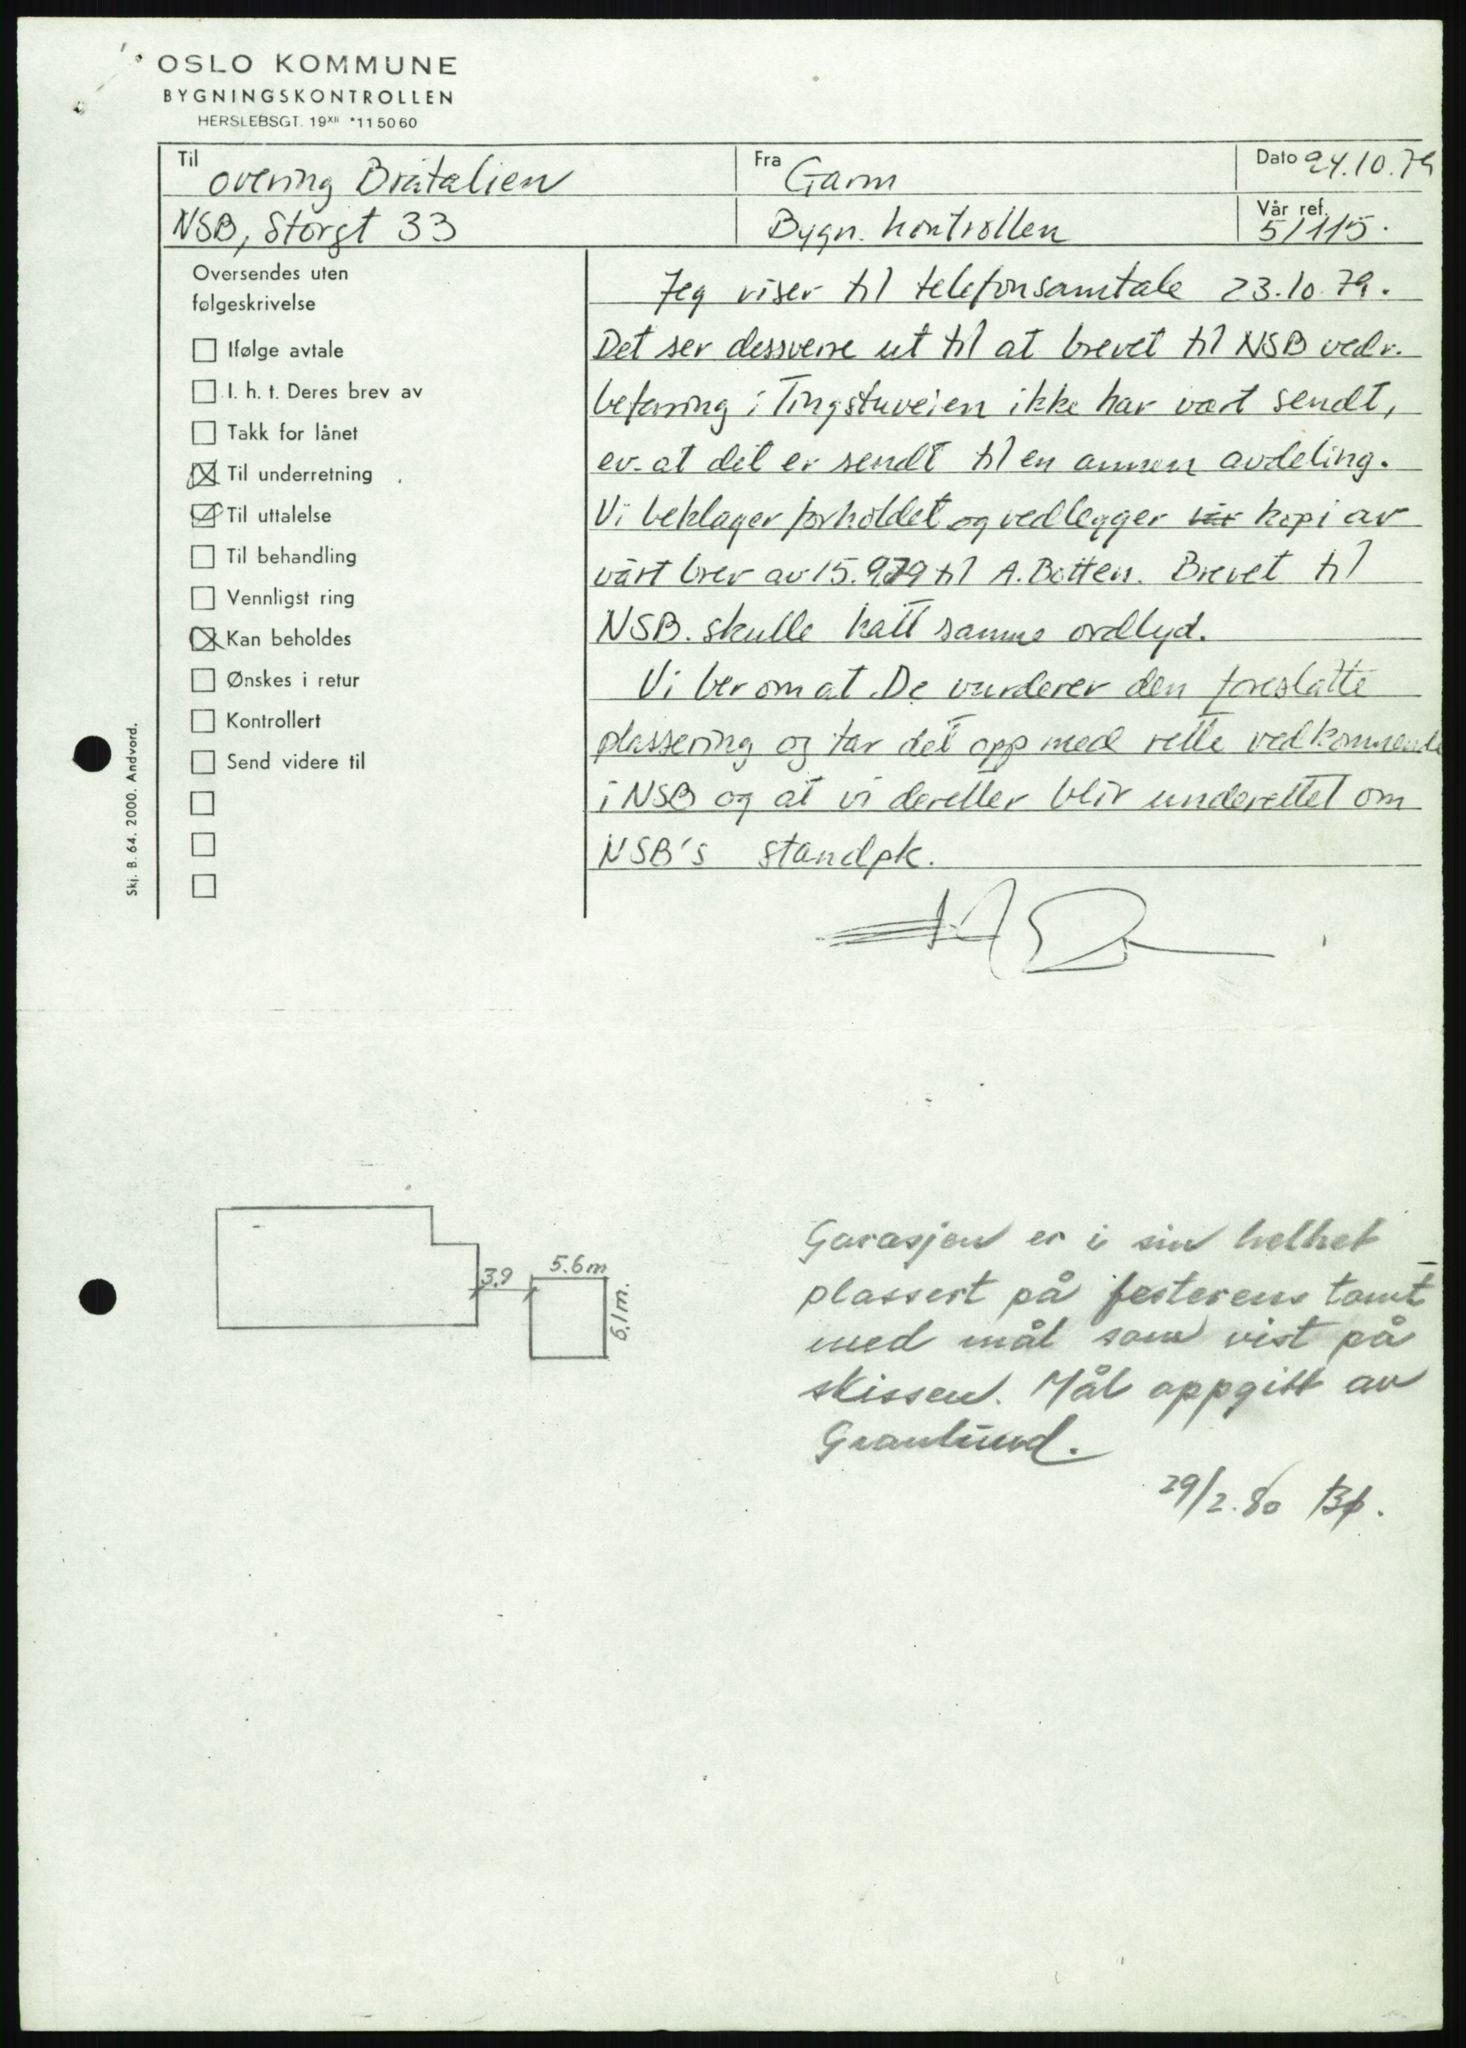 OSLO KOMMUNE
BYGNINGSKONTROLLEN
HERSLEBSGT. 19XII *115060
Til overing Bråtalien
NSB, Storgt 33
Fra Garm
Bygn. kontrollen
Dato 24.10.79
Vår ref. 51115.
Oversendes uten
følgeskrivelse
Ifølge avtale
I. h. t. Deres brev av
Takk for lånet
Til underretning
Til uttalelse
Til behandling
Vennligst ring
Kan beholdes
Ønskes i retur
Kontrollert
Send videre til
Skj. B. 64. 2000. Andvord.
Jeg viser til telefonsamtale 23.10.79.
Det ser dessverre ut til at brevet til NSB vedr.
befaring i Tingstuveien ikke har vært sendt,
ev. at det er sendt til en annen avdeling.
Vi beklager forholdet og vedlegger kopi av
vårt brev av 15.9.79 til A. Botten. Brevet til
NSB. skulle hatt samme ordlyd.
Vi ber om at De vurderer den foreslåtte
plassering og tar det opp med rette vedkommende
i NSB og at vi deretter blir underettet om
NSB's standpk.
3,9
5.6m
6,1m.
Garasjen er i sin helhet
plassert på festerens tomt
med mål som vist på
skissen. Mål oppgitt av
Granlund.
29/2.80 Bþ.